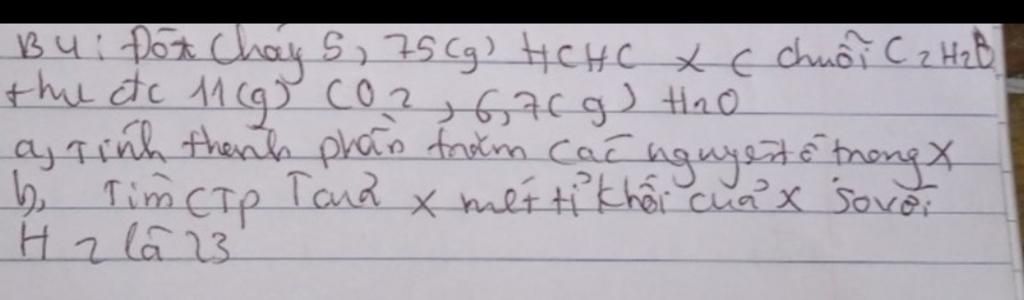 B4: Đốt cháy 5,75(g) HCHC X ( chuỗi C2H2O
thu đc 11(g) CO2, 6,7(g) H2O
a, Tính thành phần trăm các nguyên tố trong X
b, Tìm CTP T của X mết tỉ khối của X so với
H2 là 23